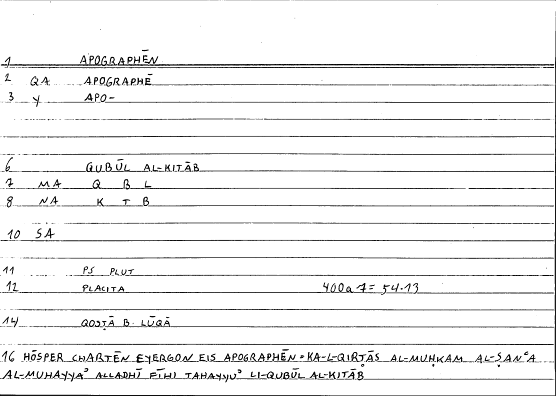 1 APOGRAPHĒN
2 QA APOGRAPHĒ
3 Y APO-
6 QUBŪL AL-KITĀB
7 MA Q B L
8 NA K T B
10 SA
11 PS PLUT
12 PLACITA 400a7=54.13
14 QOSṬĀ B. LŪQĀ
16 HŌSPER CHARTĒN EYERGON EIS APOGRAPHĒN = KA-L-QIRṬĀS AL-MUḤKAM AL-ṢANʿA
AL-MUHAYYAʾ ALLADHĪ FĪHI TAHAYYUʾ LI-QUBŪL AL-KITĀB